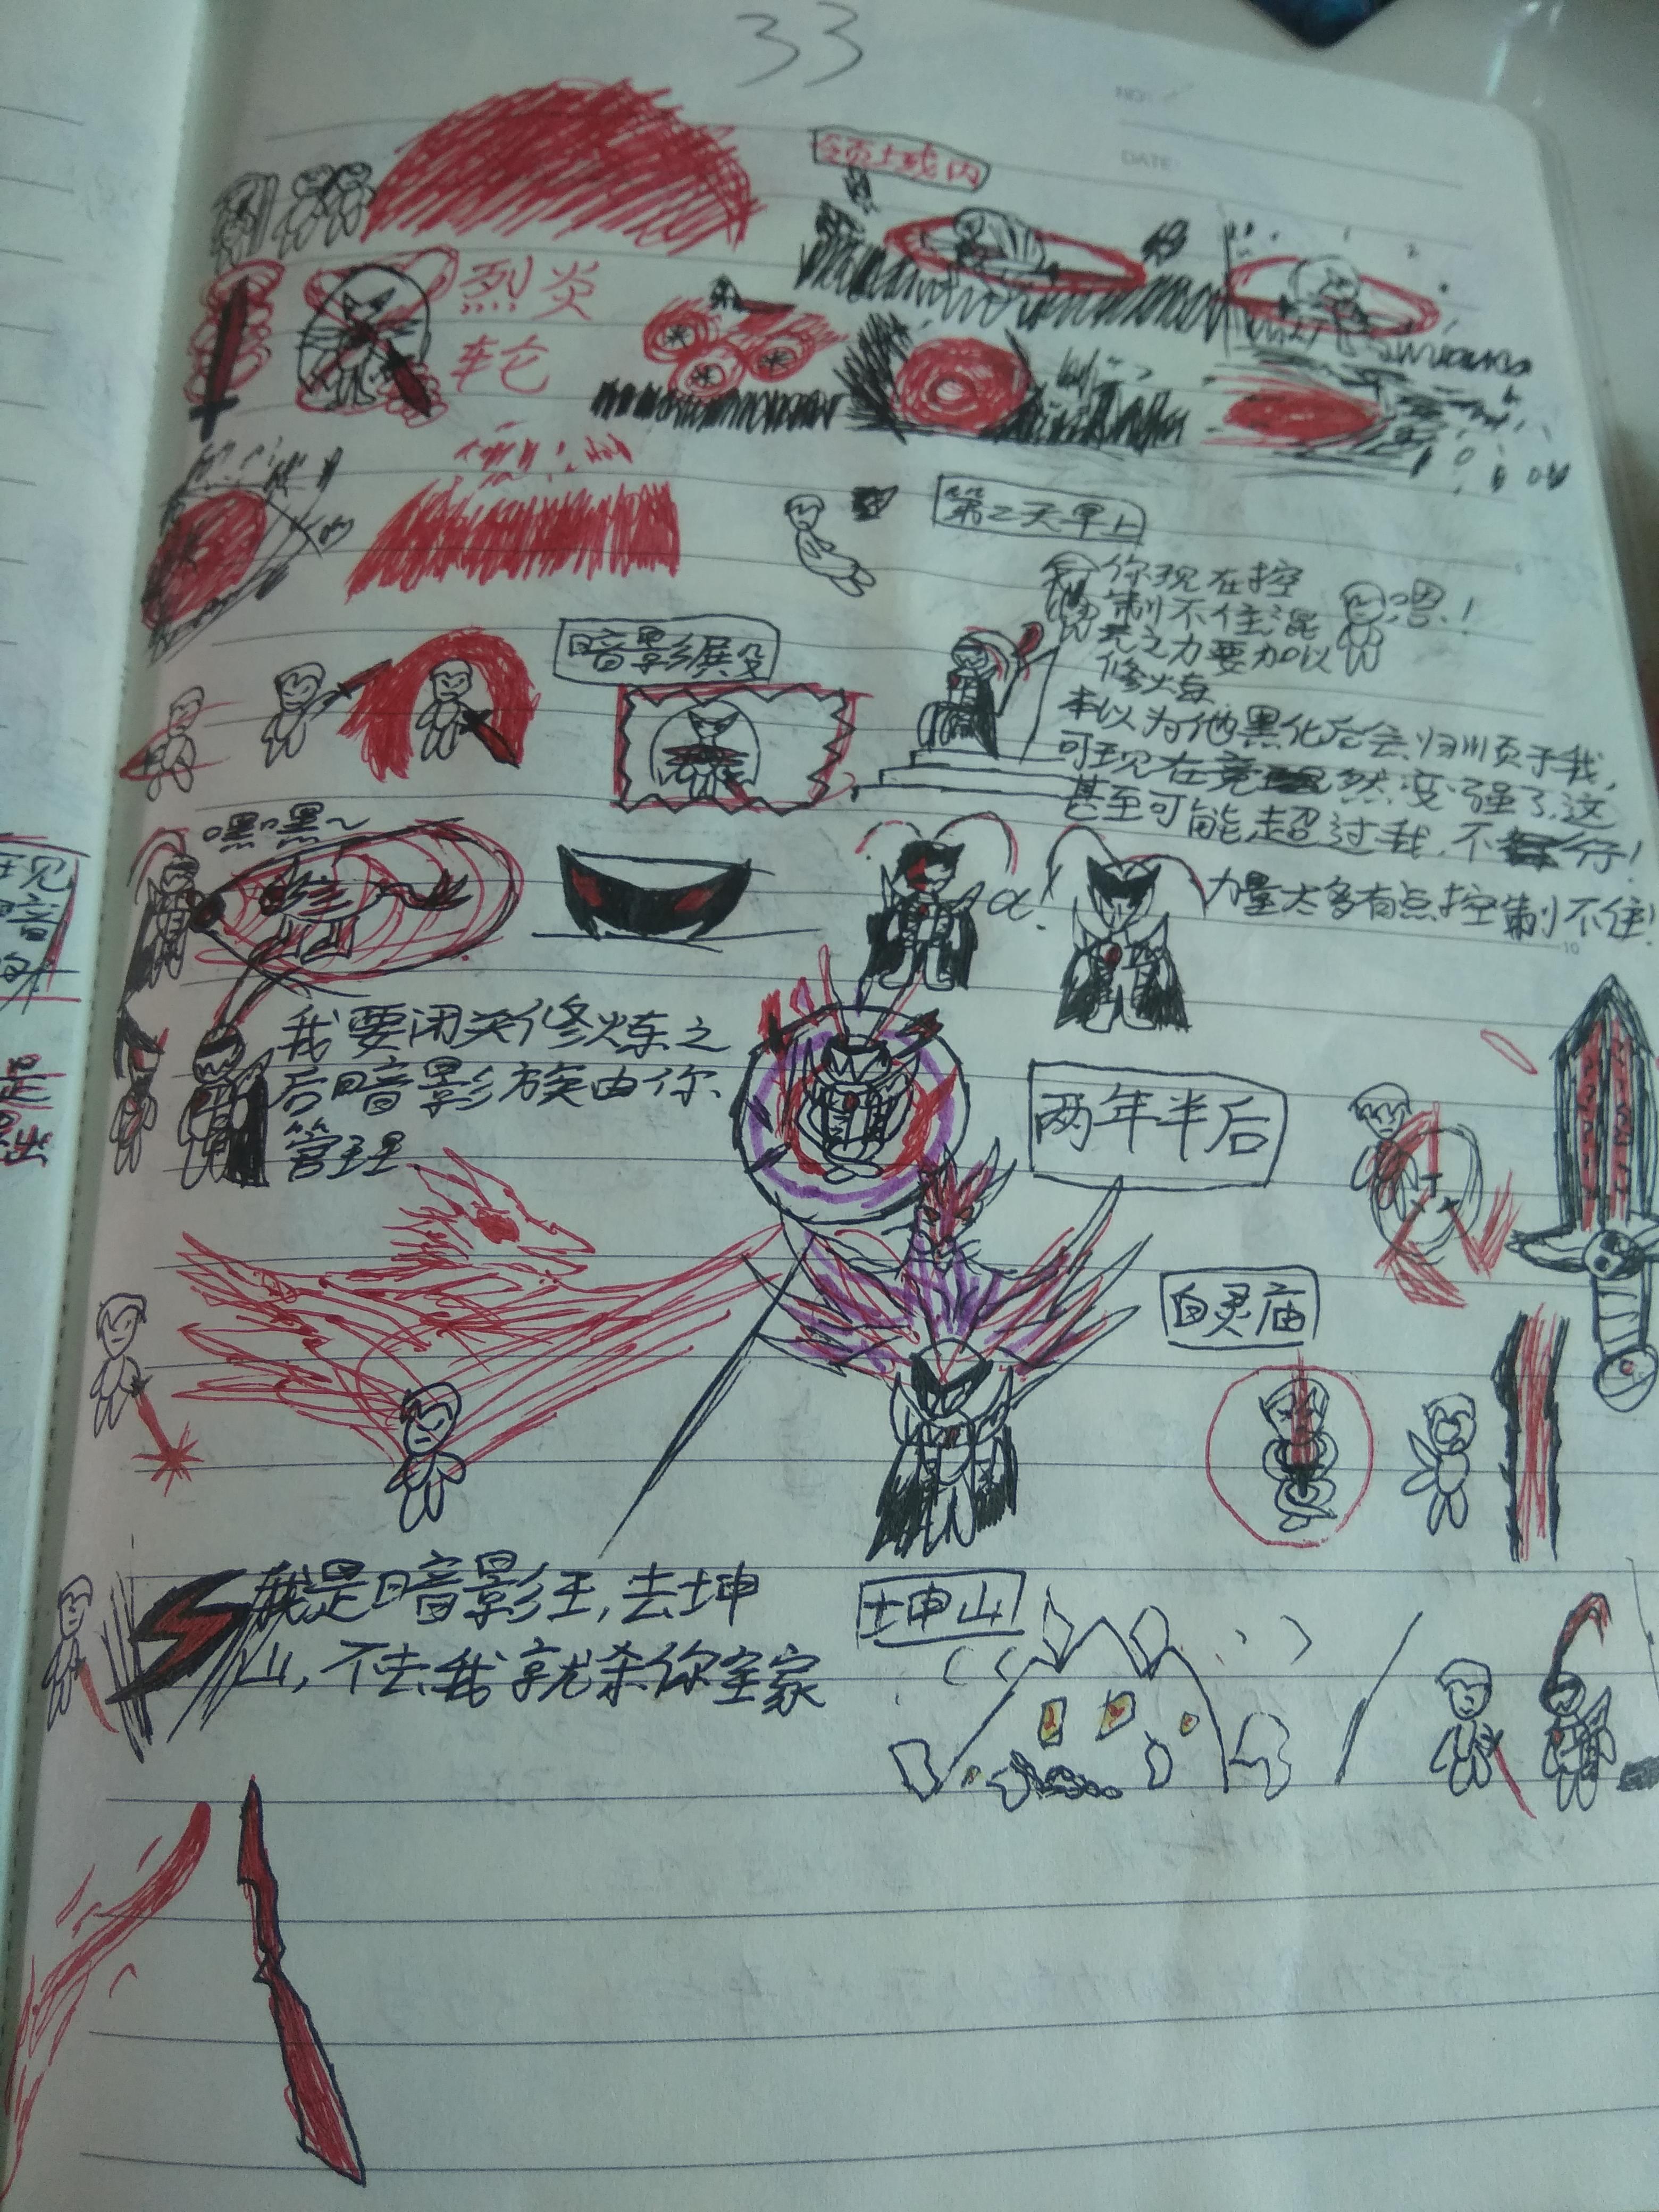 33
NO:
DATE:
领土战内
烈炎
轮
第二天早上
你现在控
制不住混
元之力要加以
修炼
嗯!
暗影殿
本以为他黑化后会归顺于我,
可现在竟然变强了,这
甚至可能超过我,不行!
嘿嘿~
力量太多有点控制不住!
我要闭关修炼之
后暗影族由你
管理
两年半后
白灵庙
我是暗影王,去坤
山,不去我就杀你全家
坤山